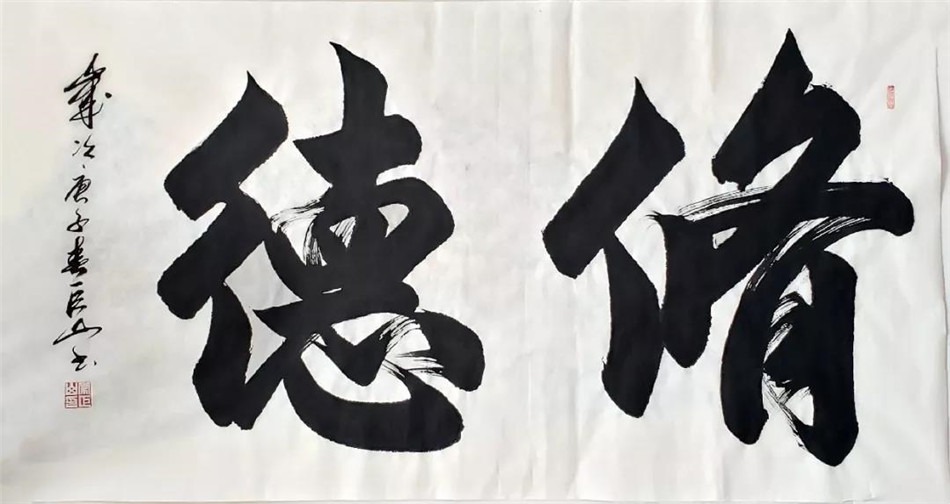 脩德
歲次庚子春巨山书